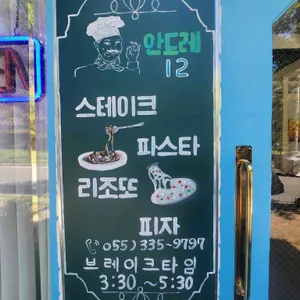 안드레
12
스테이크
파스타
리조또
피자
055) 335-9797
브레이크타임
3:30 ~ 5:30